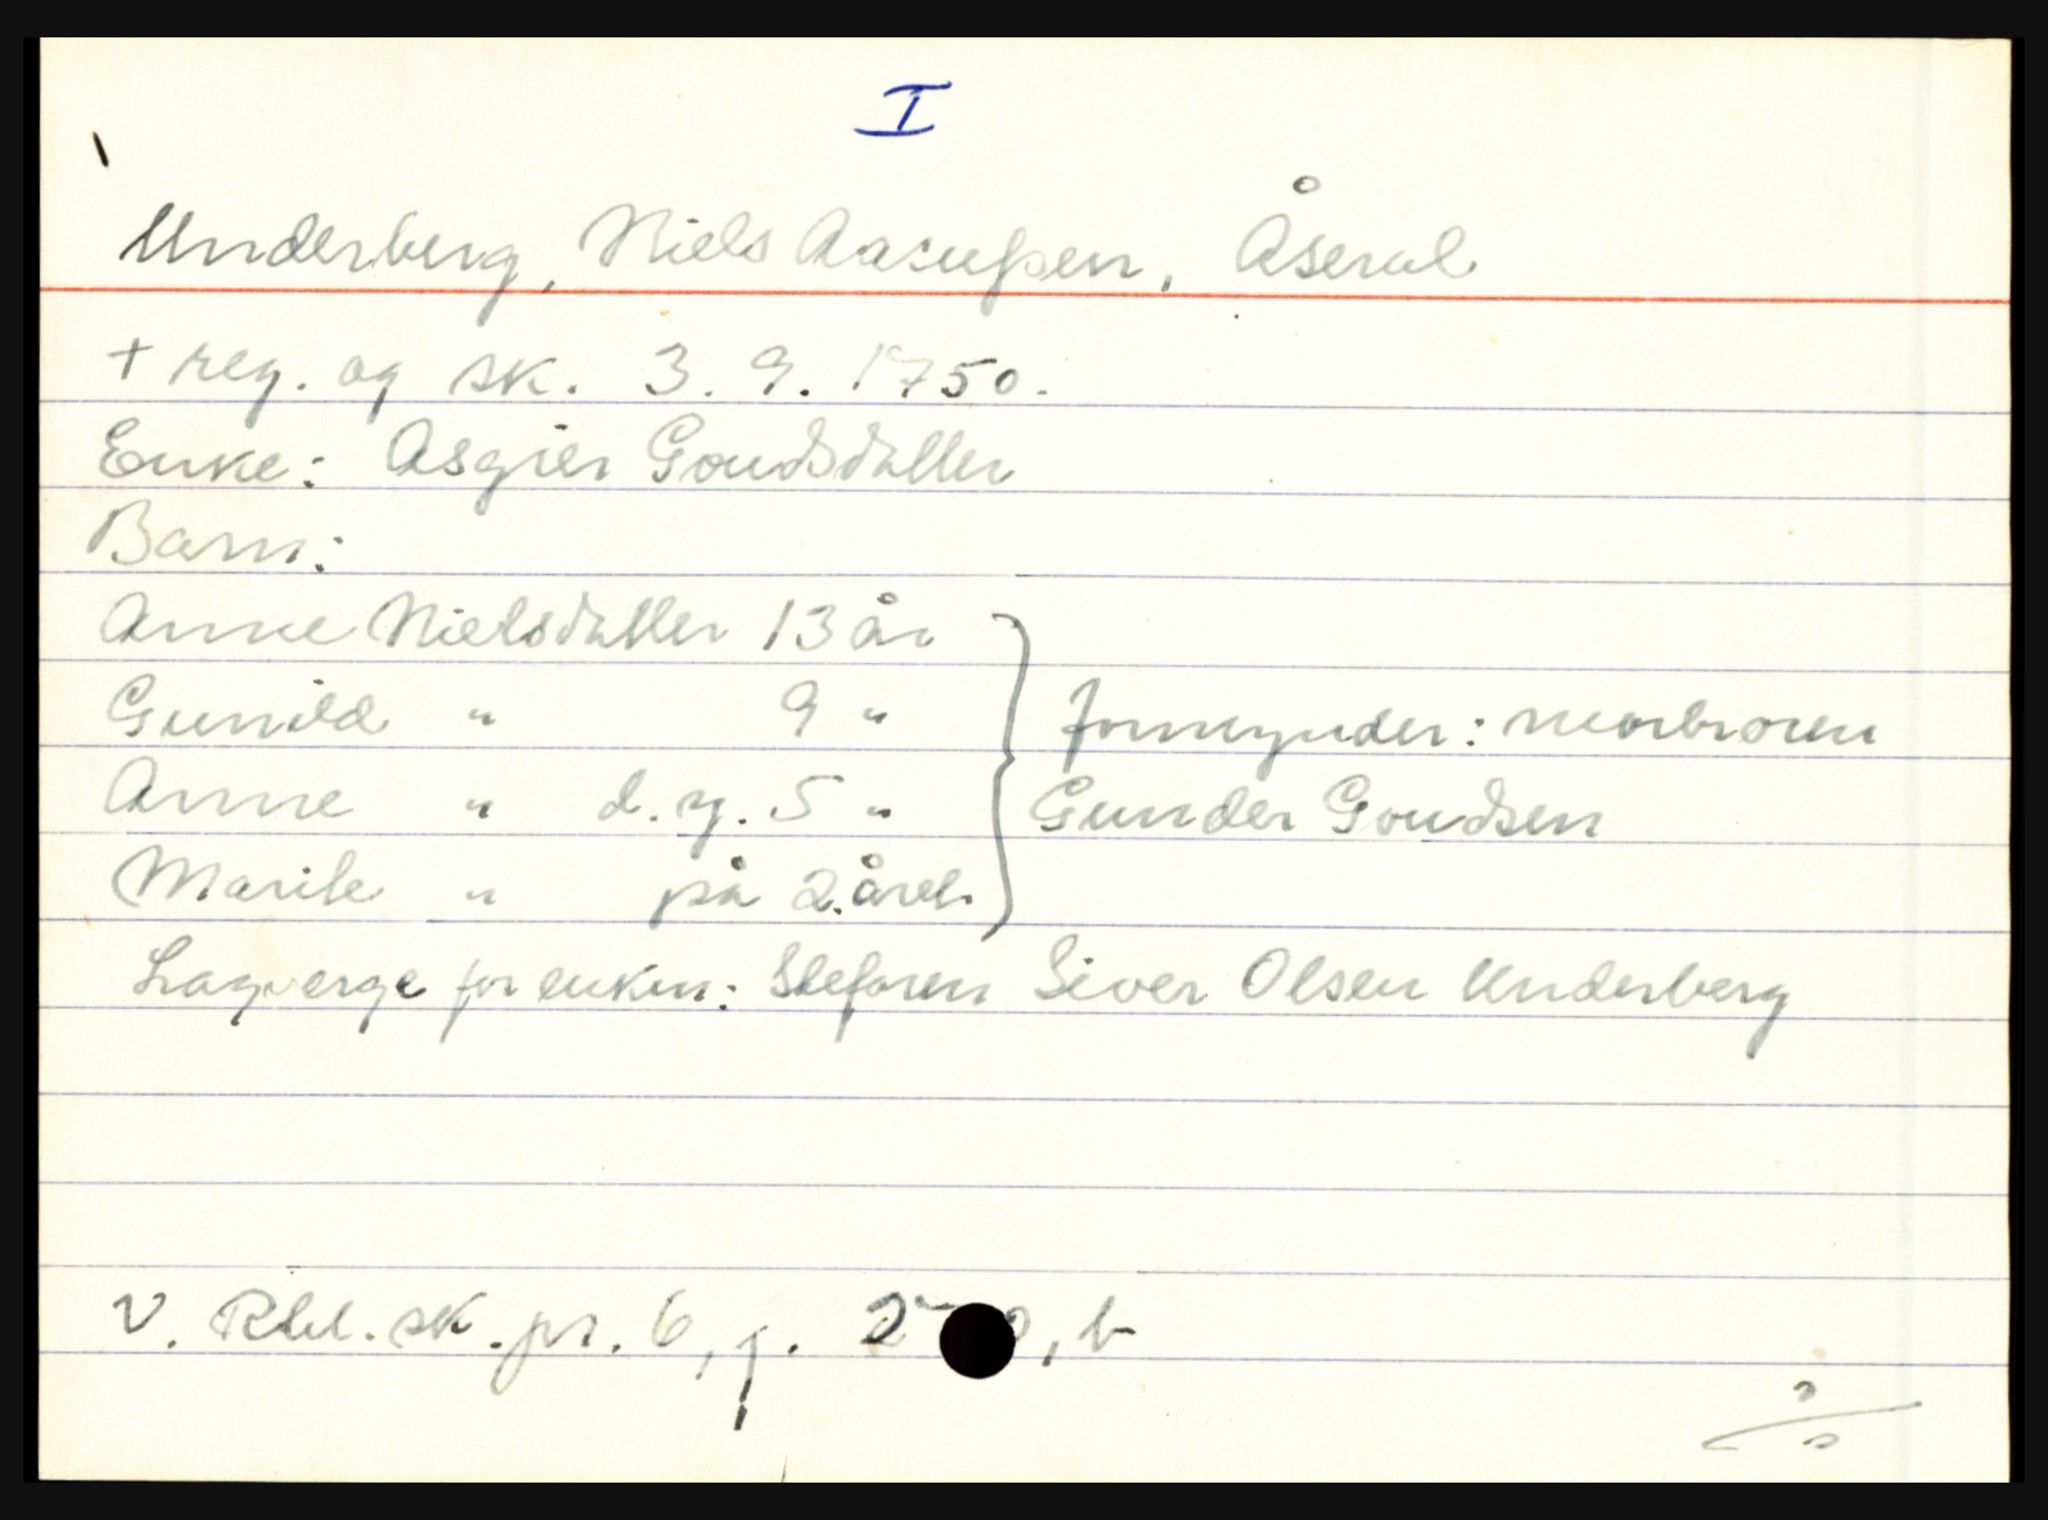 I
Underberg, Niels Aasulsen, Åseral
+ reg. og sk. 3. 9. 1750.
Enke: Asgier Goudsdatter
Barn:
Anne Nielsdatter 13 år
Gunild " 9 "
Anne " d.y. 5 "
Marite " på 2. året.
formynder: morbroren
Gunder Goudsen
Lagverge for enken: Stefaren Siver Olsen Underberg
V. Rbl. sk. pr. 6, f. , b